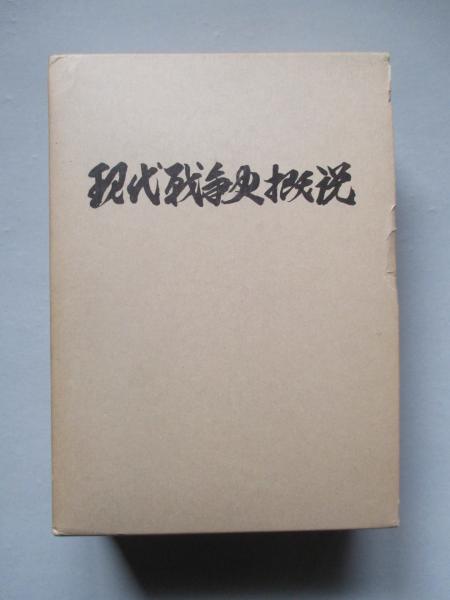 现代戦争史概説